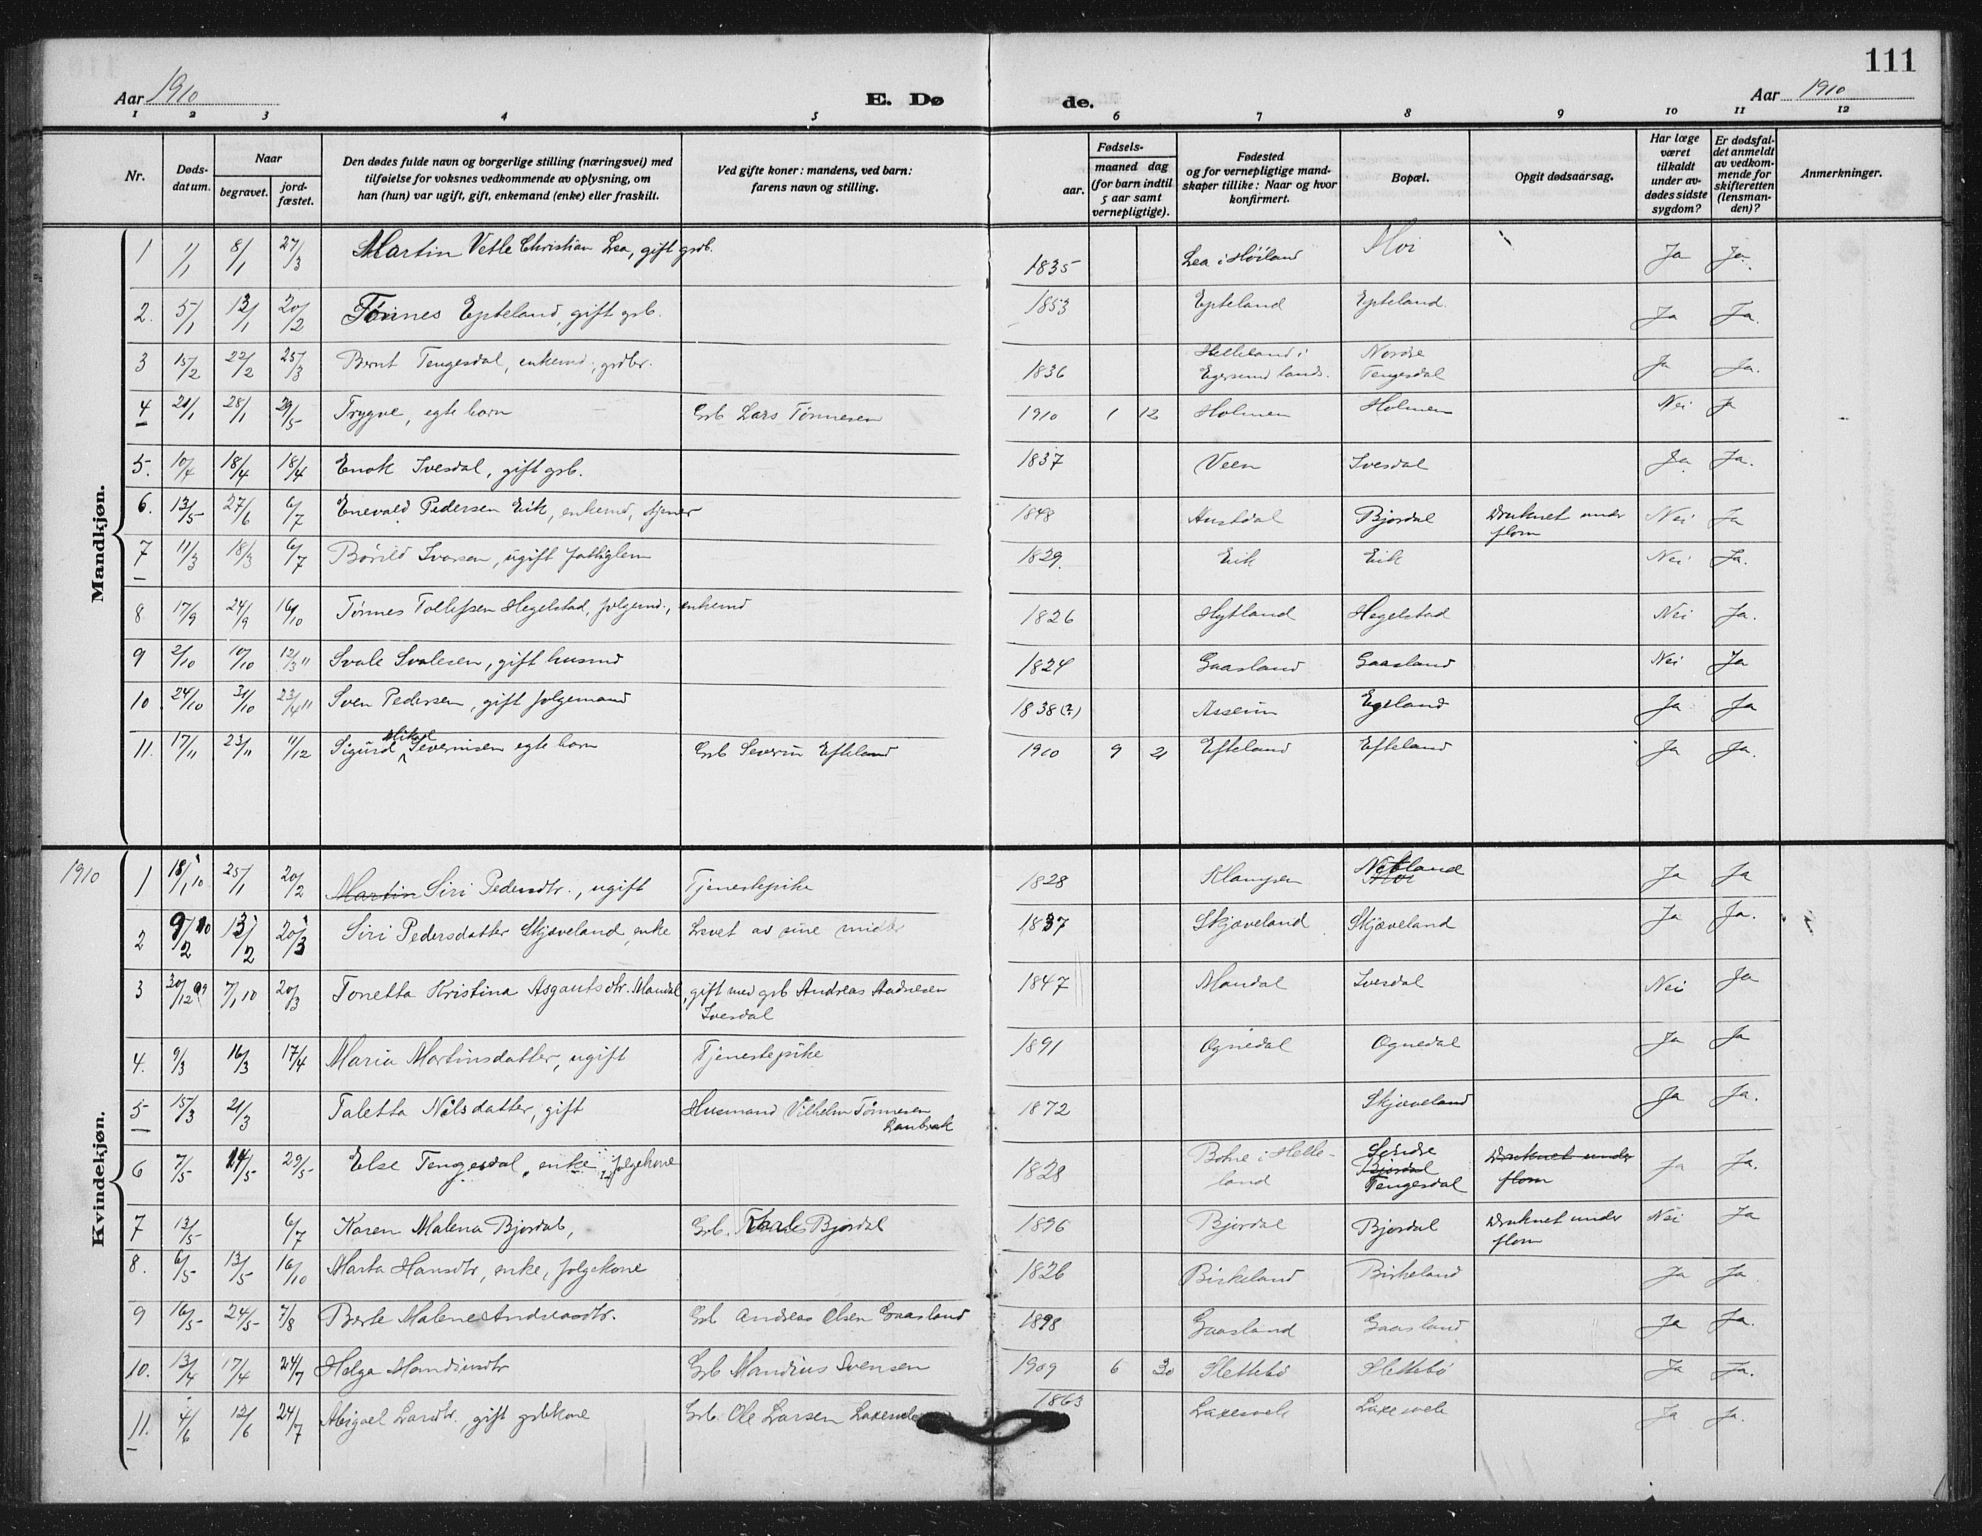 111
Aar 1910 E. Dø de. Aar 1910
1 2 3 4 5 6 7 8 9 10 11 12
Nr. Døds-datum. Naar begravet. jord-fæstet. Den dødes fulde navn og borgerlige stilling (næringsvei) med tilføielse for voksnes vedkommende av oplysning, om han (hun) var ugift, gift, enkemand (enke) eller fraskilt. Ved gifte koner: mandens, ved barn: farens navn og stilling. Fødsels- aar. maaned dag (for barn indtil 5 aar samt vernepligtige). Fødested og for vernepligtige mandskaper tillike: Naar og hvor konfirmert. Bopæl. Opgit dødsaarsag. Har læge været tilkaldt under avdødes sidste sygdom? Er dødsfaldet anmeldt av vedkommende for skifteretten (lensmanden)? Anmerkninger.
Mandkjøn.
1 1/1 8/1 27/3 Martin Vetle Christian Lea, gift grdb. 1835 Lea i Høiland Moi Ja Ja.
2. 5/1 12/1 20/2 Tønnes Epteland, gift grb. 1853 Epteland Epteland. Ja Ja.
3 15/2 22/2 25/3 Bernt Tengesdal, enkemd, grdbr. 1836 Helleland i Egersund lands. Nordre Tengesdal Ja Ja.
4 21/1 28/1 29/5 Trygve, egte barn Grb Lars Tønnesen 1910 1 12 Holmen Holmen Nei Ja
5. 10/4 18/4 18/4 Enok Ivesdal, gift grb. 1837 Veen Ivesdal Ja. Ja.
6. 13/5 27/6 6/7 Enevald Pedersen Eik, enkemd, tjener 1848 Austdal Bjordal Druknet under flom Nei Ja
7 11/3 18/3 6/7 Børild Ivarsen, ugift fattiglem 1829. Eik Eik Nei Ja.
8. 17/9 24/9 16/10 Tønnes Tollefsen Hegelstad, folgemd., enkemd 1826 Hytland Hegelstad Nei Ja.
9 2/10 10/10 12/3 11 Svale Svalesen, gift husmd 1824 Gaasland Gaasland Nei Ja
10 24/10 31/10 23/4 11 Sven Pedersen, gift folgemand 1838 (?) Asseim Egeland Ja Ja
11. 17/11 23/11 11/12 Sigurd Mikal Severinsen egte barn Grb Severin Efteland 1910 9 21 Efteland Efteland Ja Ja.
Kvindekjøn.
1910 1 18/1 10 25/1 20/2 Martin Siri Pedersdtr., ugift Tjenestepike 1828 Klampen Netland Moi Ja Ja
2 9/2 10 13/2 20/3 Siri Pedersdatter Skjæveland, enke Levet av sine midler 1837 Skjæveland Skjæveland Ja Ja.
3 30/12 09 7/1 10 20/3 Tonetta Kristina Asgautsdtr. Mandal, gift med grb Andreas Aadnesen Ivesdal 1847 Mandal Ivesdal Nei Ja
4. 9/3 16/3 17/4 Maria Martinsdatter, ugift Tjenestepike 1891 Ognedal Ognedal Ja Ja
5 15/3 21/3 Taletta Nilsdatter, gift Husmand Vilhelm Tønnesen 1872 Skjæveland Ja Ja.
6 7/5 14/5 29/5 Else Tengesdal, enke, folgekone 1828 Bøhne i Helleland Søndre Bjordal Tengesdal Druknet under flom Ja Ja.
7 13/5 6/7 Karen Malena Bjordal, Grb. Bjordal 1896 Bjordal Bjordal Druknet under flom Nei Ja
8. 6/5 13/5 16/10 Marta Hansdtr, enke, folgekone 1826 Birkeland Birkeland Ja Ja
9 16/5 24/5 7/8 Berte Malene Andreasdtr. Grb Andreas Olsen Gaasland 1898 Gaasland Gaasland Ja Ja.
10. 13/4 17/4 24/7 Helga Mandiusdtr Grb Mandius Svensen 1909 6 30 Slettebø Slettebø Ja Ja.
11. 4/6 12/6 24/7 Abigael Larsdtr., gift grbkone Grb. Ole Larsen Laxesvele 1863 Laxesvele Laxesvele Ja Ja.